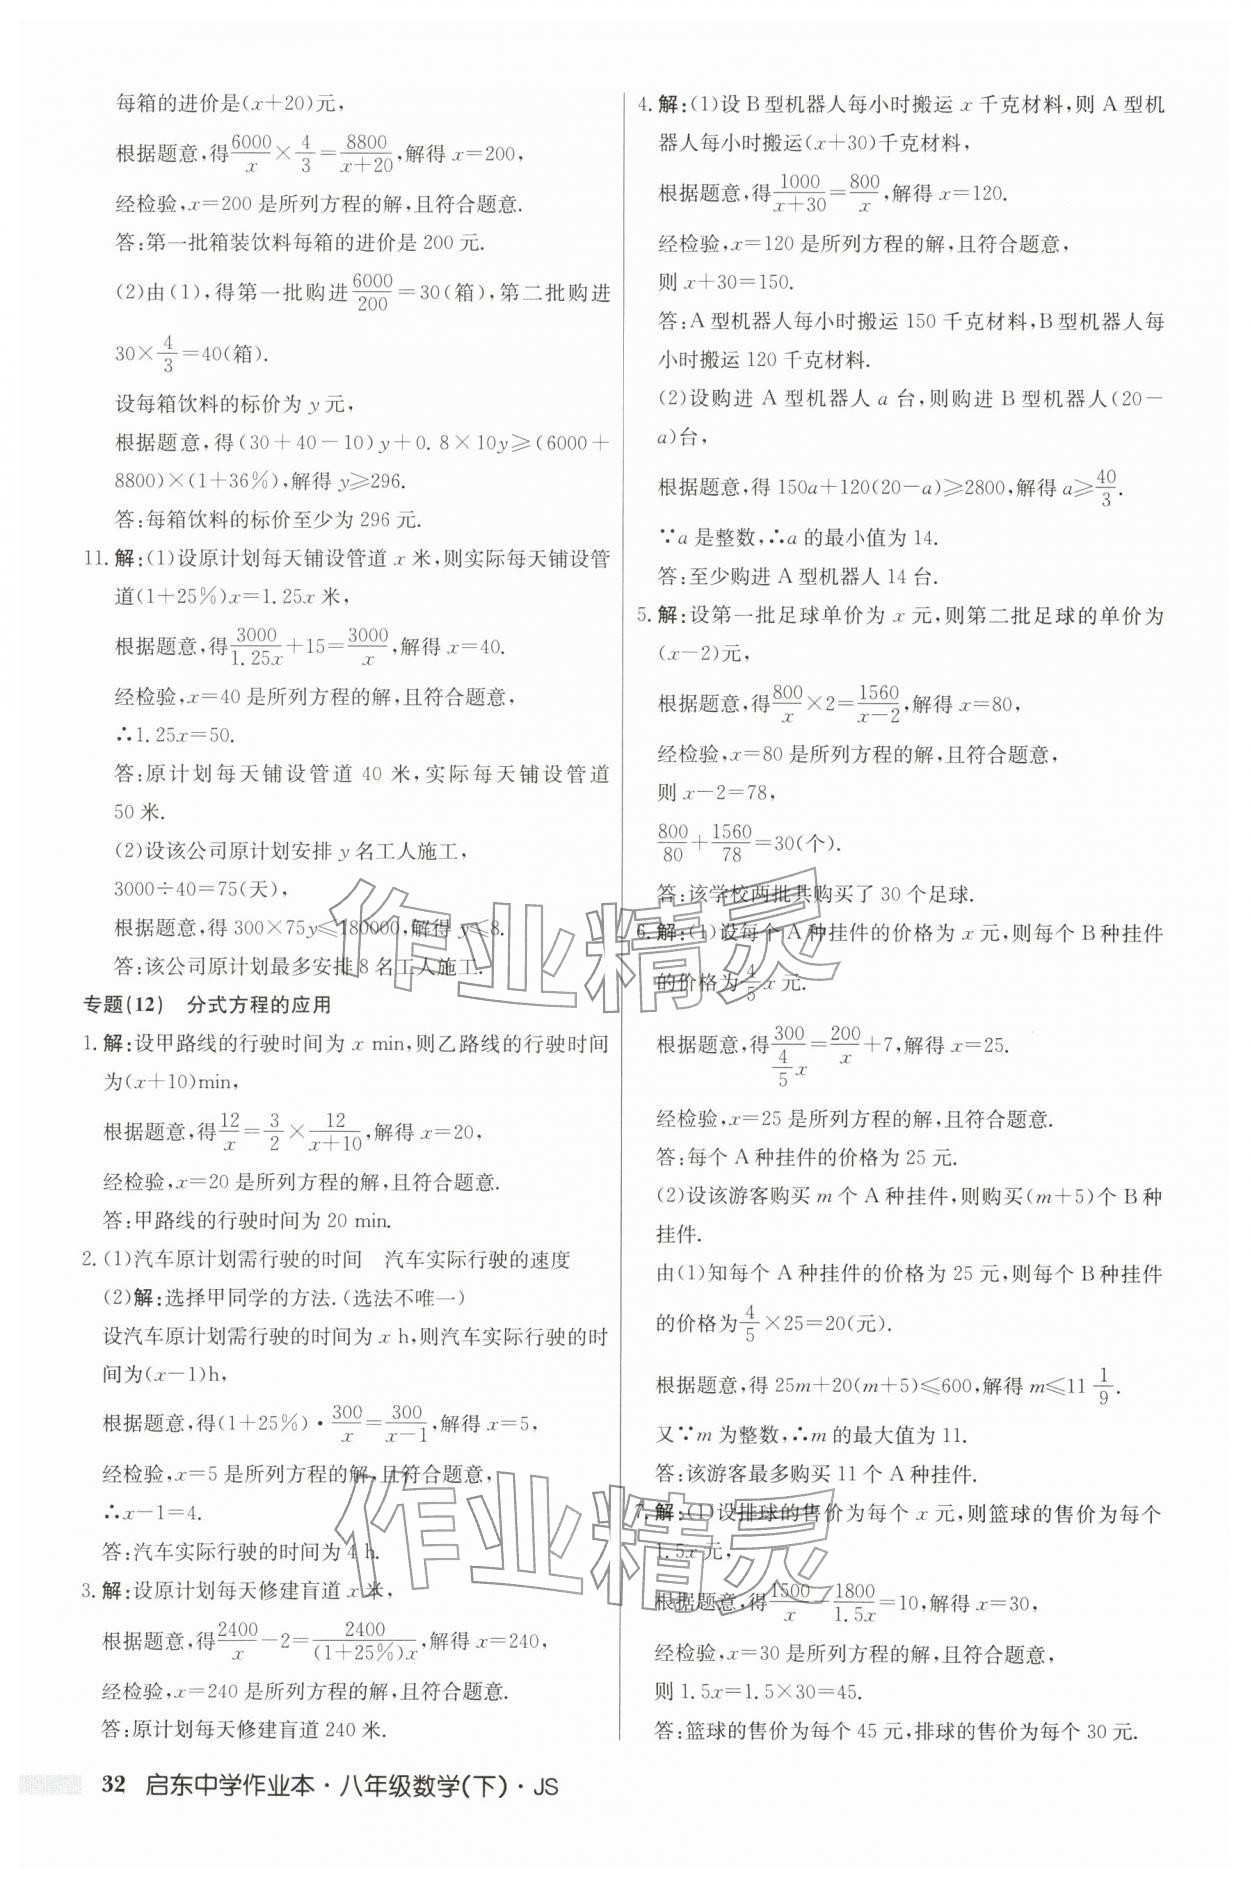 每箱的进价是(x+20)元,
根据题意,得6000/x×4/3=8800/(x+20),解得 x=200,
经检验,x=200 是所列方程的解,且符合题意.
答:第一批箱装饮料每箱的进价是 200 元.
(2)由(1),得第一批购进6000/200=30(箱),第二批购进
30×4/3=40(箱).
设每箱饮料的标价为 y 元,
根据题意,得(30+40-10)y+0.8×10y≥(6000+
8800)×(1+36%),解得 y≥296.
答:每箱饮料的标价至少为 296 元.
11. 解:(1)设原计划每天铺设管道 x 米,则实际每天铺设管
道(1+25%)x=1.25x 米,
根据题意,得3000/1.25x+15=3000/x,解得 x=40.
经检验,x=40 是所列方程的解,且符合题意,
∴1.25x=50.
答:原计划每天铺设管道 40 米,实际每天铺设管道
50 米.
(2)设该公司原计划安排 y 名工人施工,
3000÷40=75(天),
根据题意,得 300×75y≤180000,解得 y≤8.
答:该公司原计划最多安排 8 名工人施工.
专题(12) 分式方程的应用
1. 解:设甲路线的行驶时间为 x min,则乙路线的行驶时间
为(x+10)min,
根据题意,得12/x=3/2×12/(x+10),解得 x=20,
经检验,x=20 是所列方程的解,且符合题意.
答:甲路线的行驶时间为 20 min.
2. (1)汽车原计划需行驶的时间 汽车实际行驶的速度
(2)解:选择甲同学的方法.(选法不唯一)
设汽车原计划需行驶的时间为 x h,则汽车实际行驶的时
间为(x-1)h,
根据题意,得(1+25%)·300/x=300/(x-1),解得 x=5,
经检验,x=5 是所列方程的解,且符合题意,
∴x-1=4.
答:汽车实际行驶的时间为 4 h.
3. 解:设原计划每天修建盲道 x 米,
根据题意,得2400/x-2=2400/(1+25%)x,解得 x=240,
经检验,x=240 是所列方程的解,且符合题意.
答:原计划每天修建盲道 240 米.
4. 解:(1)设 B 型机器人每小时搬运 x 千克材料,则 A 型机
器人每小时搬运(x+30)千克材料,
根据题意,得1000/(x+30)=800/x,解得 x=120.
经检验,x=120 是所列方程的解,且符合题意,
则 x+30=150.
答:A 型机器人每小时搬运 150 千克材料,B 型机器人每
小时搬运 120 千克材料.
(2)设购进 A 型机器人 a 台,则购进 B 型机器人(20-
a)台,
根据题意,得 150a+120(20-a)≥2800,解得 a≥40/3.
∵a 是整数,∴a 的最小值为 14.
答:至少购进 A 型机器人 14 台.
5. 解:设第一批足球单价为 x 元,则第二批足球的单价为
(x-2)元,
根据题意,得800/x×2=1560/(x-2),解得 x=80,
经检验,x=80 是所列方程的解,且符合题意,
则 x-2=78,
800/80+1560/78=30(个).
答:该学校两批共购买了 30 个足球.
6. 解:(1)设每个 A 种挂件的价格为 x 元,则每个 B 种挂件
的价格为4/5x 元.
根据题意,得300/(4/5x)=200/x+7,解得 x=25.
经检验,x=25 是所列方程的解,且符合题意.
答:每个 A 种挂件的价格为 25 元.
(2)设该游客购买 m 个 A 种挂件,则购买(m+5)个 B 种
挂件.
由(1)知每个 A 种挂件的价格为 25 元,则每个 B 种挂件
的价格为4/5×25=20(元).
根据题意,得 25m+20(m+5)≤600,解得 m≤11 1/9.
又∵m 为整数,∴m 的最大值为 11.
答:该游客最多购买 11 个 A 种挂件.
7. 解:(1)设排球的售价为每个 x 元,则篮球的售价为每个
1.5x 元,
根据题意,得1500/x-1800/1.5x=10,解得 x=30,
经检验,x=30 是所列方程的解,且符合题意,
则 1.5x=1.5×30=45.
答:篮球的售价为每个 45 元,排球的售价为每个 30 元.
作业精灵
作业精灵
32 启东中学作业本·八年级数学(下)·JS